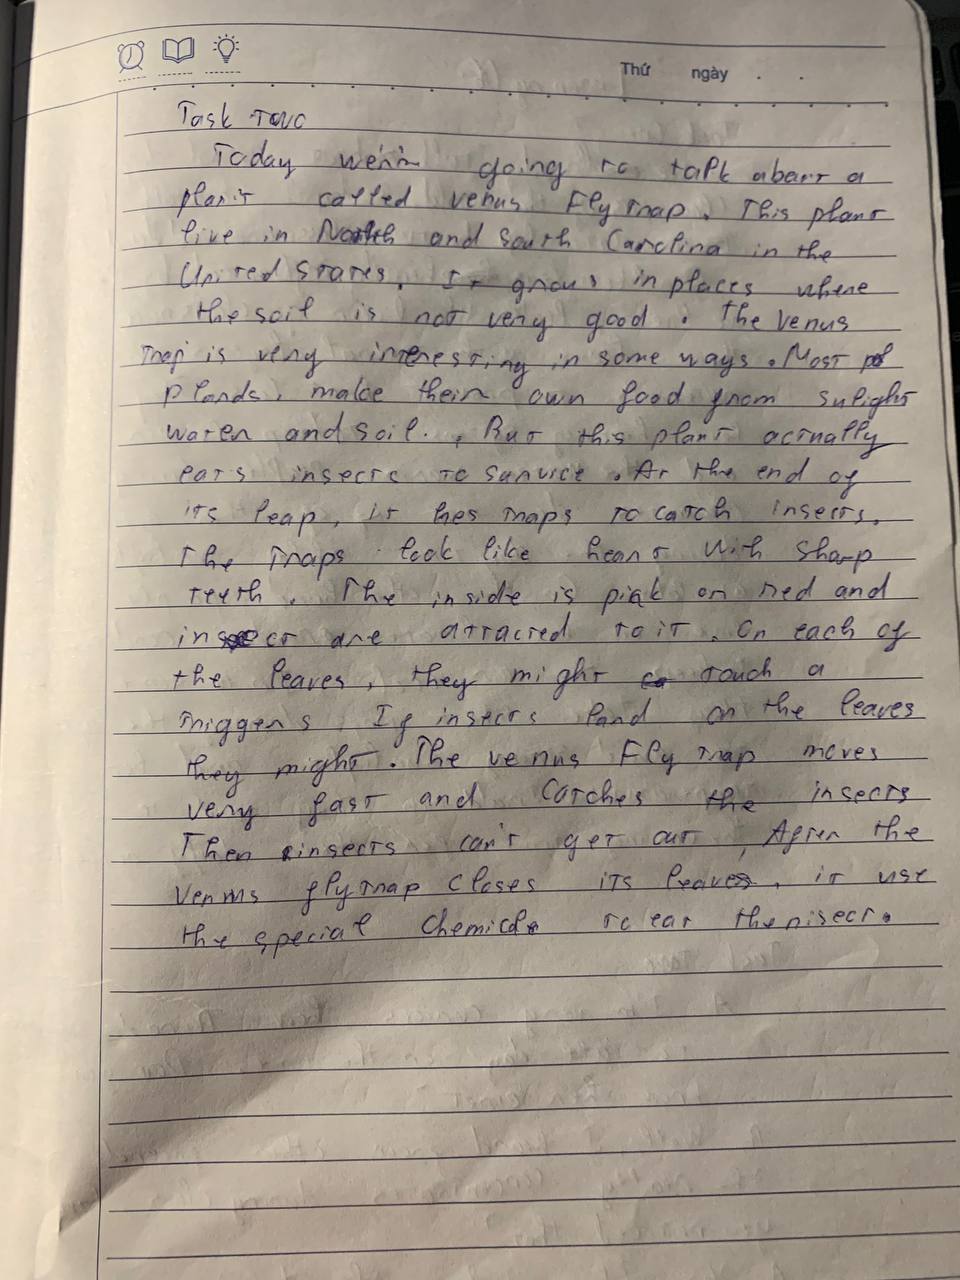 Thứ ngày . .
Task Two
Today we're going to talk about a
plant called venus Fly trap. This plant
live in North and South Carolina in the
United States. It grows in places where
the soil is not very good. The Venus
Trap is very interesting in some ways. Most
plands, make their own food from sulight
water and soil. But this plant actually
eats insects to survice. At the end of
its leap, it hes traps to catch insects.
The Traps look like heart with sharp
teeth. The inside is pink or red and
insect are attraced to it. On each of
the leaves, they might touch a
triggers. If insects land on the leaves
they might. The venus Fly trap moves
very fast and Catches the insects
Then insects can't get out, After the
Venus flytrap closes its leaves, it use
the special Chemicals to eat the nisect.